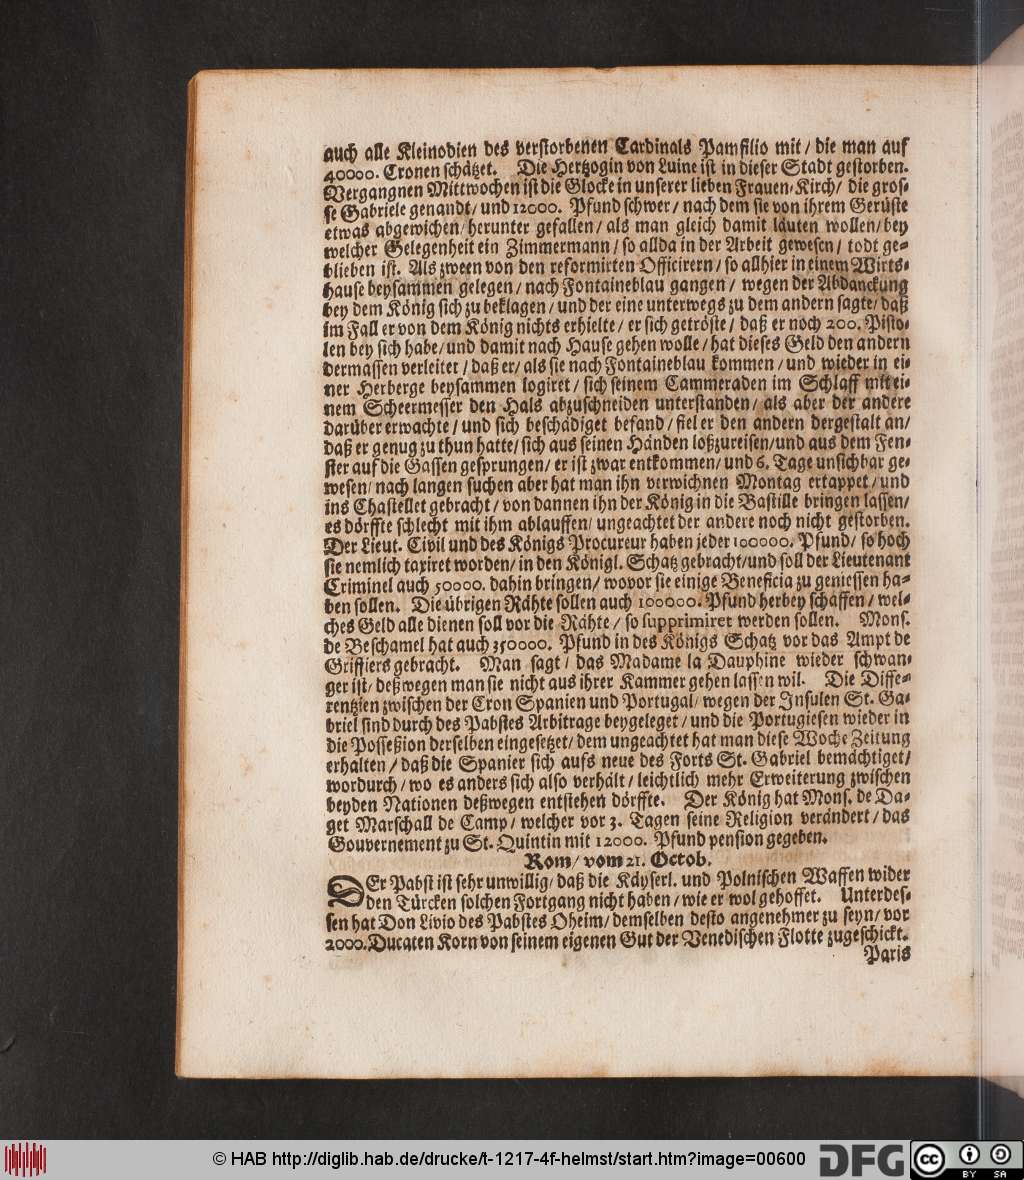 auch alle Kleinodien des verstorbenen Cardinals Pamfilio mit / die man auf
40000. Cronen schätzet. Die Hertzogin von Luine ist in dieser Stadt gestorben.
Vergangnen Mittwochen ist die Glocke in unserer lieben Frauen-Kirch / die gros-
se Gabriele genandt / und 12000. Pfund schwer / nach dem sie von ihrem Gerüste
etwas abgewichen / herunter gefallen / als man gleich damit läuten wollen / bey
welcher Gelegenheit ein Zimmermann / so allda in der Arbeit gewesen / todt ge-
blieben ist. Als zween von den reformirten Officirern / so allhier in einem Wirts-
hause beysammen gelegen / nach Fontaineblau gangen / wegen der Abdanckung
bey dem König sich zu beklagen / und der eine unterwegs zu dem andern sagte / daß
im Fall er von dem König nichts erhielte / er sich getröste / daß er noch 200. Pisto-
len bey sich habe / und damit nach Hause gehen wolle / hat dieses Geld den andern
dermassen verleitet / daß er / als sie nach Fontaineblau kommen / und wieder in ei-
ner Herberge beysammen logiret / sich seinem Cammeraden im Schlaff mit ei-
nem Scheermesser den Hals abzuschneiden unterstanden / als aber der andere
darüber erwachte / und sich beschädiget befand / fiel er den andern dergestalt an /
daß er genug zu thun hatte / sich aus seinen Händen loßzureisen / und aus dem Fen-
ster auf die Gassen gesprungen / er ist zwar entkommen / und 6. Tage unsichbar ge-
wesen / nach langen suchen aber hat man ihn verwichnen Montag ertappet / und
ins Chastellet gebracht / von dannen ihn der König in die Bastille bringen lassen /
es dörffte schlecht mit ihm ablauffen / ungeachtet der andere noch nicht gestorben.
Der Lieut. Civil und des Königs Procureur haben jeder 100000. Pfund / so hoch
sie nemlich taxiret worden / in den Königl. Schatz gebracht / und soll der Lieutenant
Criminel auch 50000. dahin bringen / wovor sie einige Beneficia zu geniessen ha-
ben sollen. Die übrigen Rähte sollen auch 100000. Pfund herbey schaffen / wel-
ches Geld alle dienen soll vor die Rähte / so supprimiret werden sollen. Mons.
de Beschamel hat auch 350000. Pfund in des Königs Schatz vor das Ampt de
Griffiers gebracht. Man sagt / das Madame la Dauphine wieder schwan-
ger ist / deßwegen man sie nicht aus ihrer Kammer gehen lassen wil. Die Diffe-
rentzien zwischen der Cron Spanien und Portugal / wegen der Insulen St. Ga-
briel sind durch des Pabstes Arbitrage beygeleget / und die Portugiesen wieder in
die Posseßion derselben eingesetzet / dem ungeachtet hat man diese Woche Zeitung
erhalten / daß die Spanier sich aufs neue des Forts St. Gabriel bemächtiget /
wordurch / wo es anders sich also verhält / leichtlich mehr Erweiterung zwischen
beyden Nationen deßwegen entstehen dörffte. Der König hat Mons. de Da-
get Marschall de Camp / welcher vor 3. Tagen seine Religion verändert / das
Gouvernement zu St. Quintin mit 12000. Pfund pension gegeben.
Rom / vom 21. Octob.
DEr Pabst ist sehr unwillig / daß die Käyserl. und Polnischen Waffen wider
den Türcken solchen Fortgang nicht haben / wie er wol gehoffet. Unterdes-
sen hat Don Livio des Pabstes Oheim / demselben desto angenehmer zu seyn / vor
2000. Ducaten Korn von seinem eigenen Gut der Venedischen Flotte zugeschickt.
Paris
© HAB http://diglib.hab.de/drucke/t-1217-4f-helmst/start.htm?image=00600
DFG
cc BY SA